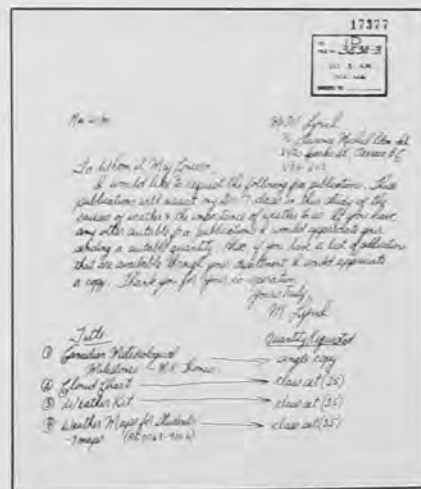 17377
3530-3
M. Lynch
To Whom it May Concern
I would like to request the following for publications. These
publications will assist my class in their study of the
causes of weather & the importance of weather to us. If you have
any other suitable publications I would appreciate your
sending a suitable quantity. Also, if you have a list of publications
that are available through your department I would appreciate
a copy. Thank you for your co-operation
Yours truly,
M. Lynch
Title Quantity Requested
① Canadian Meteorological
Milestones - Thomas single copy
② Cloud Chart class set (35)
③ Weather Kit class set (35)
④ Weather Maps for Students class set (35)
- 7 maps